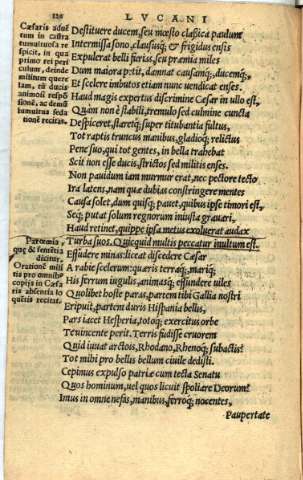 126
LVCANI
Cæsaris adortum in castra tumultuosa respicit, in quo primo rei periculum, deinde militum querelam, eā ducis animosā responsionē, ac demū tumultus sedationē recitās.
Destituere ducem, seu mœsto classica paulum
Intermissa sono, claususq; & frigidus ensis
Expulerat belli furias, seu præmia miles
Dum maiora petit, damnat causamq;, ducemq;,
Et scelere imbutos etiam nunc uendicat enses.
Haud magis expertus discrimine Cæsar in ullo est,
Quàm non è stabili, tremulo sed culmine cuncta
Despiceret, staretq; super titubantia fultus,
Tot raptis truncus manibus, gladioq; relictus
Pene suo, qui tot gentes, in bella trahebat
Scit non esse ducis, strictos sed militis enses.
Non pauidum iam murmur erat, nec pectore tecto
Ira latens, nam quæ dubias constringere mentes
Causa solet, dum quisq; pauet, quibus ipse timori est,
Seq; putat solum regnorum iniusta grauari,
Haud retinet, quippe ipsa metus exoluerat audax
Parœmia, quæ & sententia dicitur.
Turba suos. Quicquid multis peccatur inultum est.
Oratione militis pro omnibus copijs in Cæsaris absentia loquentis recitat.
Effudere minas: liceat discedere Cæsar
A rabie scelerum: quæris terraq; mariq;
His ferrum iugulis, animasq; effundere uiles
Quolibet hoste paras, partem tibi Gallia nostri
Eripuit, partem duris Hispania bellis,
Pars iacet Hesperia, totoq; exercitus orbe
Te uincente perit. Terris fudisse cruorem
Quid iuuat arctois, Rhodano, Rhenoq; subactis?
Tot mihi pro bellis bellum ciuile dedisti.
Cepimus expulso patriæ cum tecta Senatu
Quos hominum, uel quos licuit spoliare Deorum?
Imus in omne nefas, manibus, ferroq; nocentes,
Paupertate